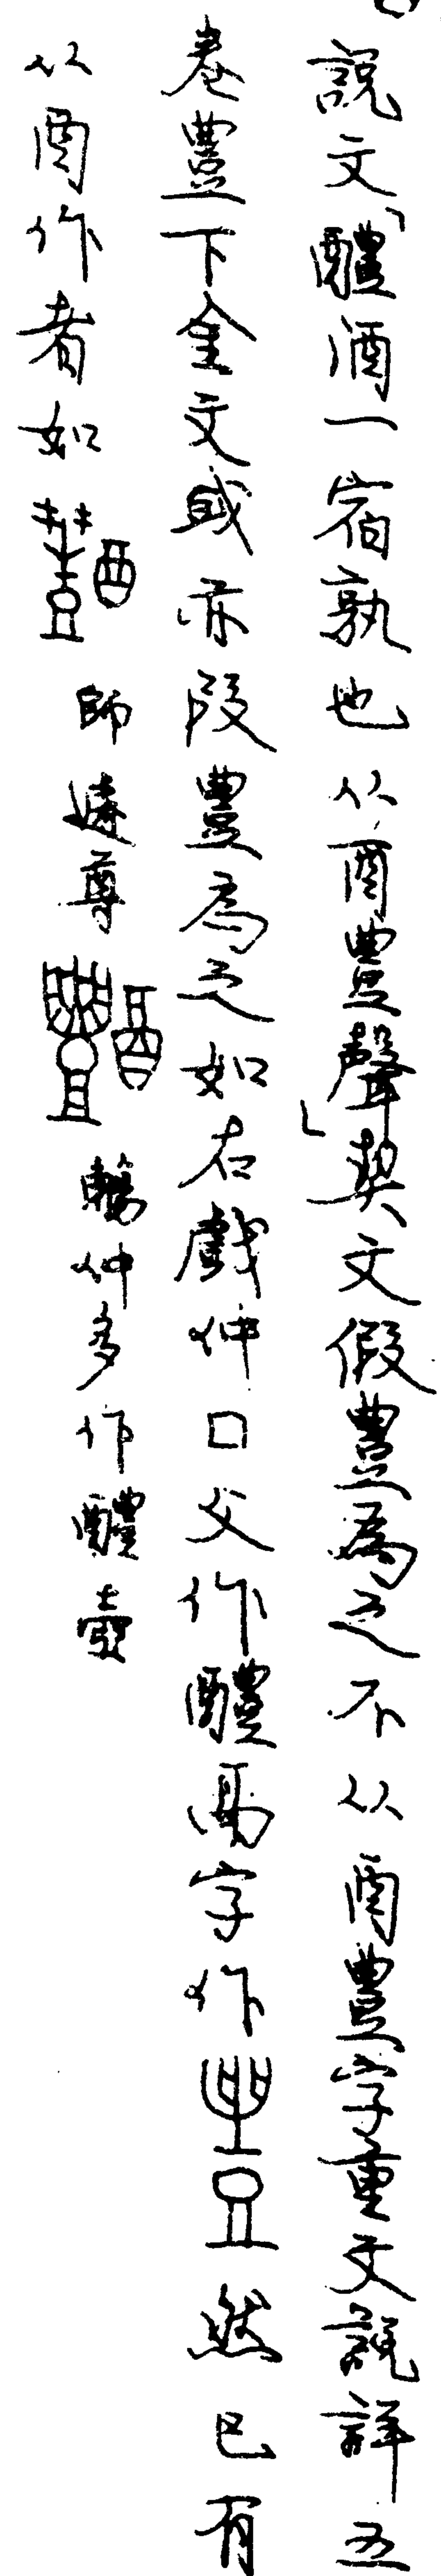 說文「醴酒一宿孰也从酉豊聲」契文假豊為之不从酉豊字重文說詳五
卷豊下金文或亦叚豊為之如右戲仲口父作醴鬲字作然已有
从酉作者如師遽尊仲多作醴壺